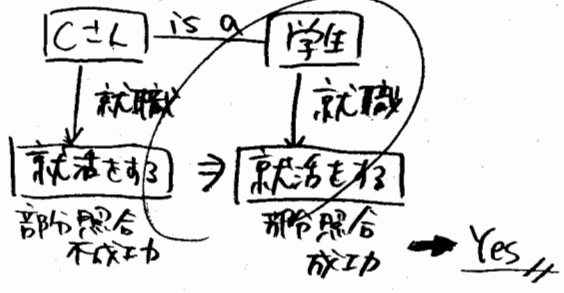 Cさん is a 学生
就職 就職
就活をする ⇒ 就活をする
部分照合 部分照合
不成功 成功
➡ Yes